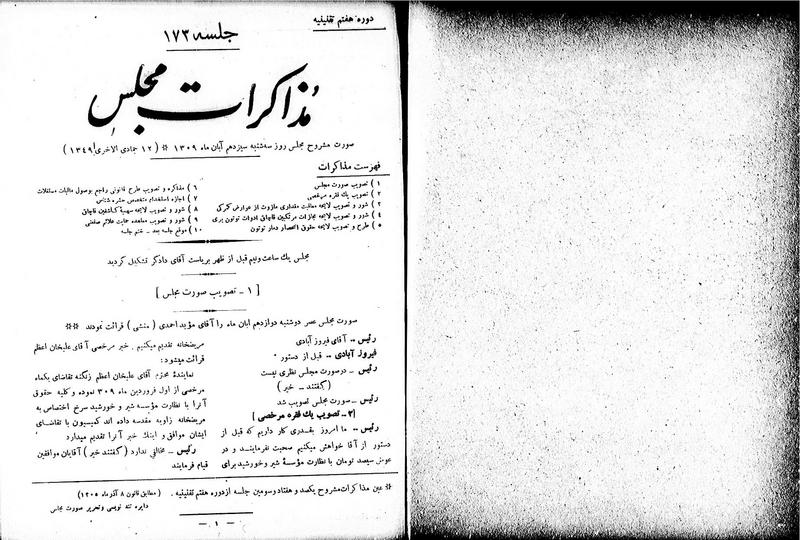 دوره هفتم تقنینیه
جلسه ۱۷۳
مذاکرات مجلس
صورت مشروح مجلس روز سه‌شنبه سیزدهم آبان ماه ۱۳۰۹ * (۱۲ جمادی الاخری ۱۳۴۹)
فهرست مذاکرات
۱) تصویب صورت مجلس
۲) تصویب یك فقره مرخصی
۳) شور و تصویب لایحه معافیت مقداری مازوت از عوارض گمرکی
۴) شور و تصویب لایحه مجازات مرتکبین قاچاق ادوات توتون بری
۵) طرح و تصویب لایحه حقوق انحصار دمار توتون
۶) مذاکره و تصویب طرح قانونی راجع بوصول مالیات مستغلات
۷) اجازه استخدام متخصص حشره شناس
۸) شور و تصویب لایحه سهمیه کاشفین قاچاق
۹) شور و تصویب معاهده حمایت علائم صنعتی
۱۰) موقع جلسه بعد ـ ختم جلسه
مجلس یك ساعت ونیم قبل از ظهر بریاست آقای دادگر تشکیل گردید
[ ۱ ـ تصویب صورت مجلس ]
صورت مجلس عصر دوشنبه دوازدهم ابان ماه را آقای مؤید احمدی (منشی) قرائت نمودند **
رئیس ـ آقای فیروز آبادی
فیروز آبادی ـ قبل از دستور
رئیس ـ درصورت مجلس نظری نیست
(گفتند ـ خیر)
رئیس ـ صورت مجلس تصویب شد
[۲ـ تصویب یك فقره مرخصی]
رئیس ـ ما امروز بقدری کار داریم که قبل از
دستور از آقا خواهش میکنیم صحبت نفرمایند و در
عوض سیصد تومان با نظارت مؤسسهٔ شیر وخورشید برای
مریضخانه تقدیم میکنیم . خبر مرخصی آقای علیخان اعظم
قرائت میشود :
نمایندهٔ محترم آقای علیخان اعظم زنگنه تقاضای یکماه
مرخصی از اول فروردین ماه ۳۰۹ نموده و کلیه حقوق
آنرا با نظارت مؤسسه شیر و خورشید سرخ اختصاص به
مریضخانه زاویه مقدسه داده اند کمیسیون با تقاضای
ایشان موافق و اینك خبر آنرا تقدیم میدارد
رئیس ـ مخالفی ندارد (گفتند خیر) آقایان موافقین
قیام فرمایند
* عین مذاکرات مشروح یکصد و هفتاد و سومین جلسه از دوره هفتم تقنینیه . (مطابق قانون ۸ آذر ماه ۱۳۰۵)
دایره تند نویسی و تحریر صورت مجلس
ـ ۱ ـ